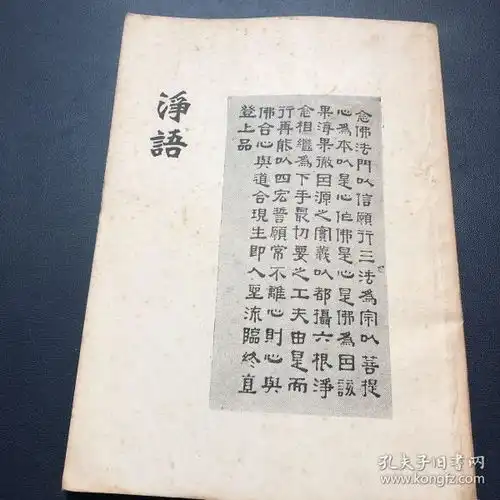 淨語
念佛法門以信願行三法為宗以菩提
心為本以是心作佛是心是佛為因該
果海果徹因源之實義以都攝六根淨
念相繼為下手最切要之工夫由是而
行再能以四宏誓願常不離心則心與
佛合心與道合現生即入聖流臨終直
登上品
孔夫子旧書网
book.kongfz.com